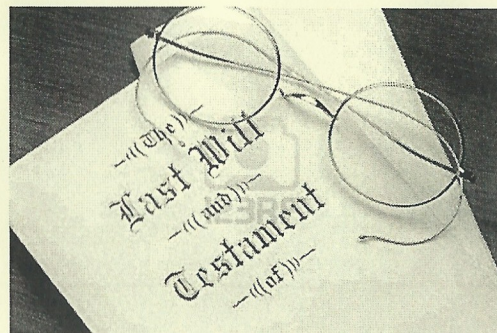 ~((The))~
Last Will
~((and))~
Testament
~((of))~
123RF